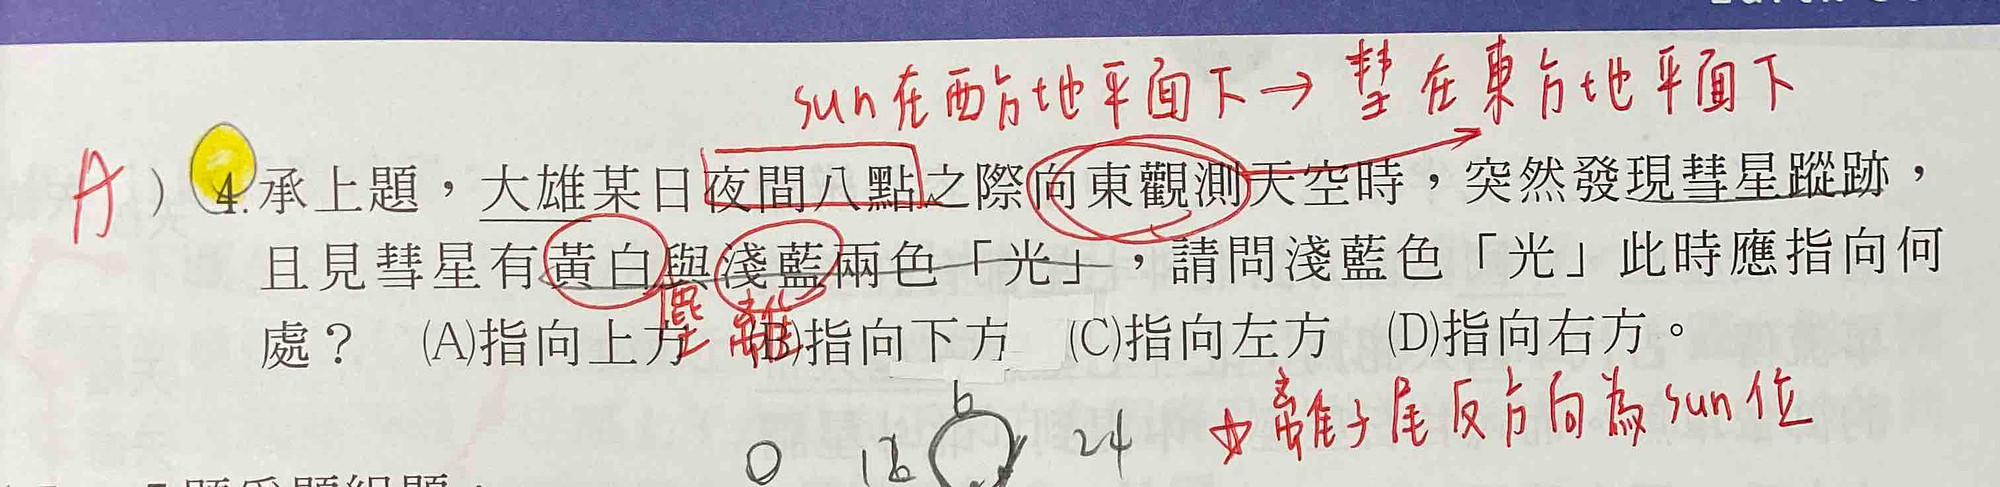 sun在西方地平面下→彗在東方地平面下
A)4.承上題，大雄某日夜間八點之際向東觀測天空時，突然發現彗星蹤跡，
且見彗星有黃白與淺藍兩色「光」，請問淺藍色「光」此時應指向何
塵 離
處？ (A)指向上方 (B)指向下方 (C)指向左方 (D)指向右方。
☆離子尾反方向為sun位
6
0 18 24
題為題組題：